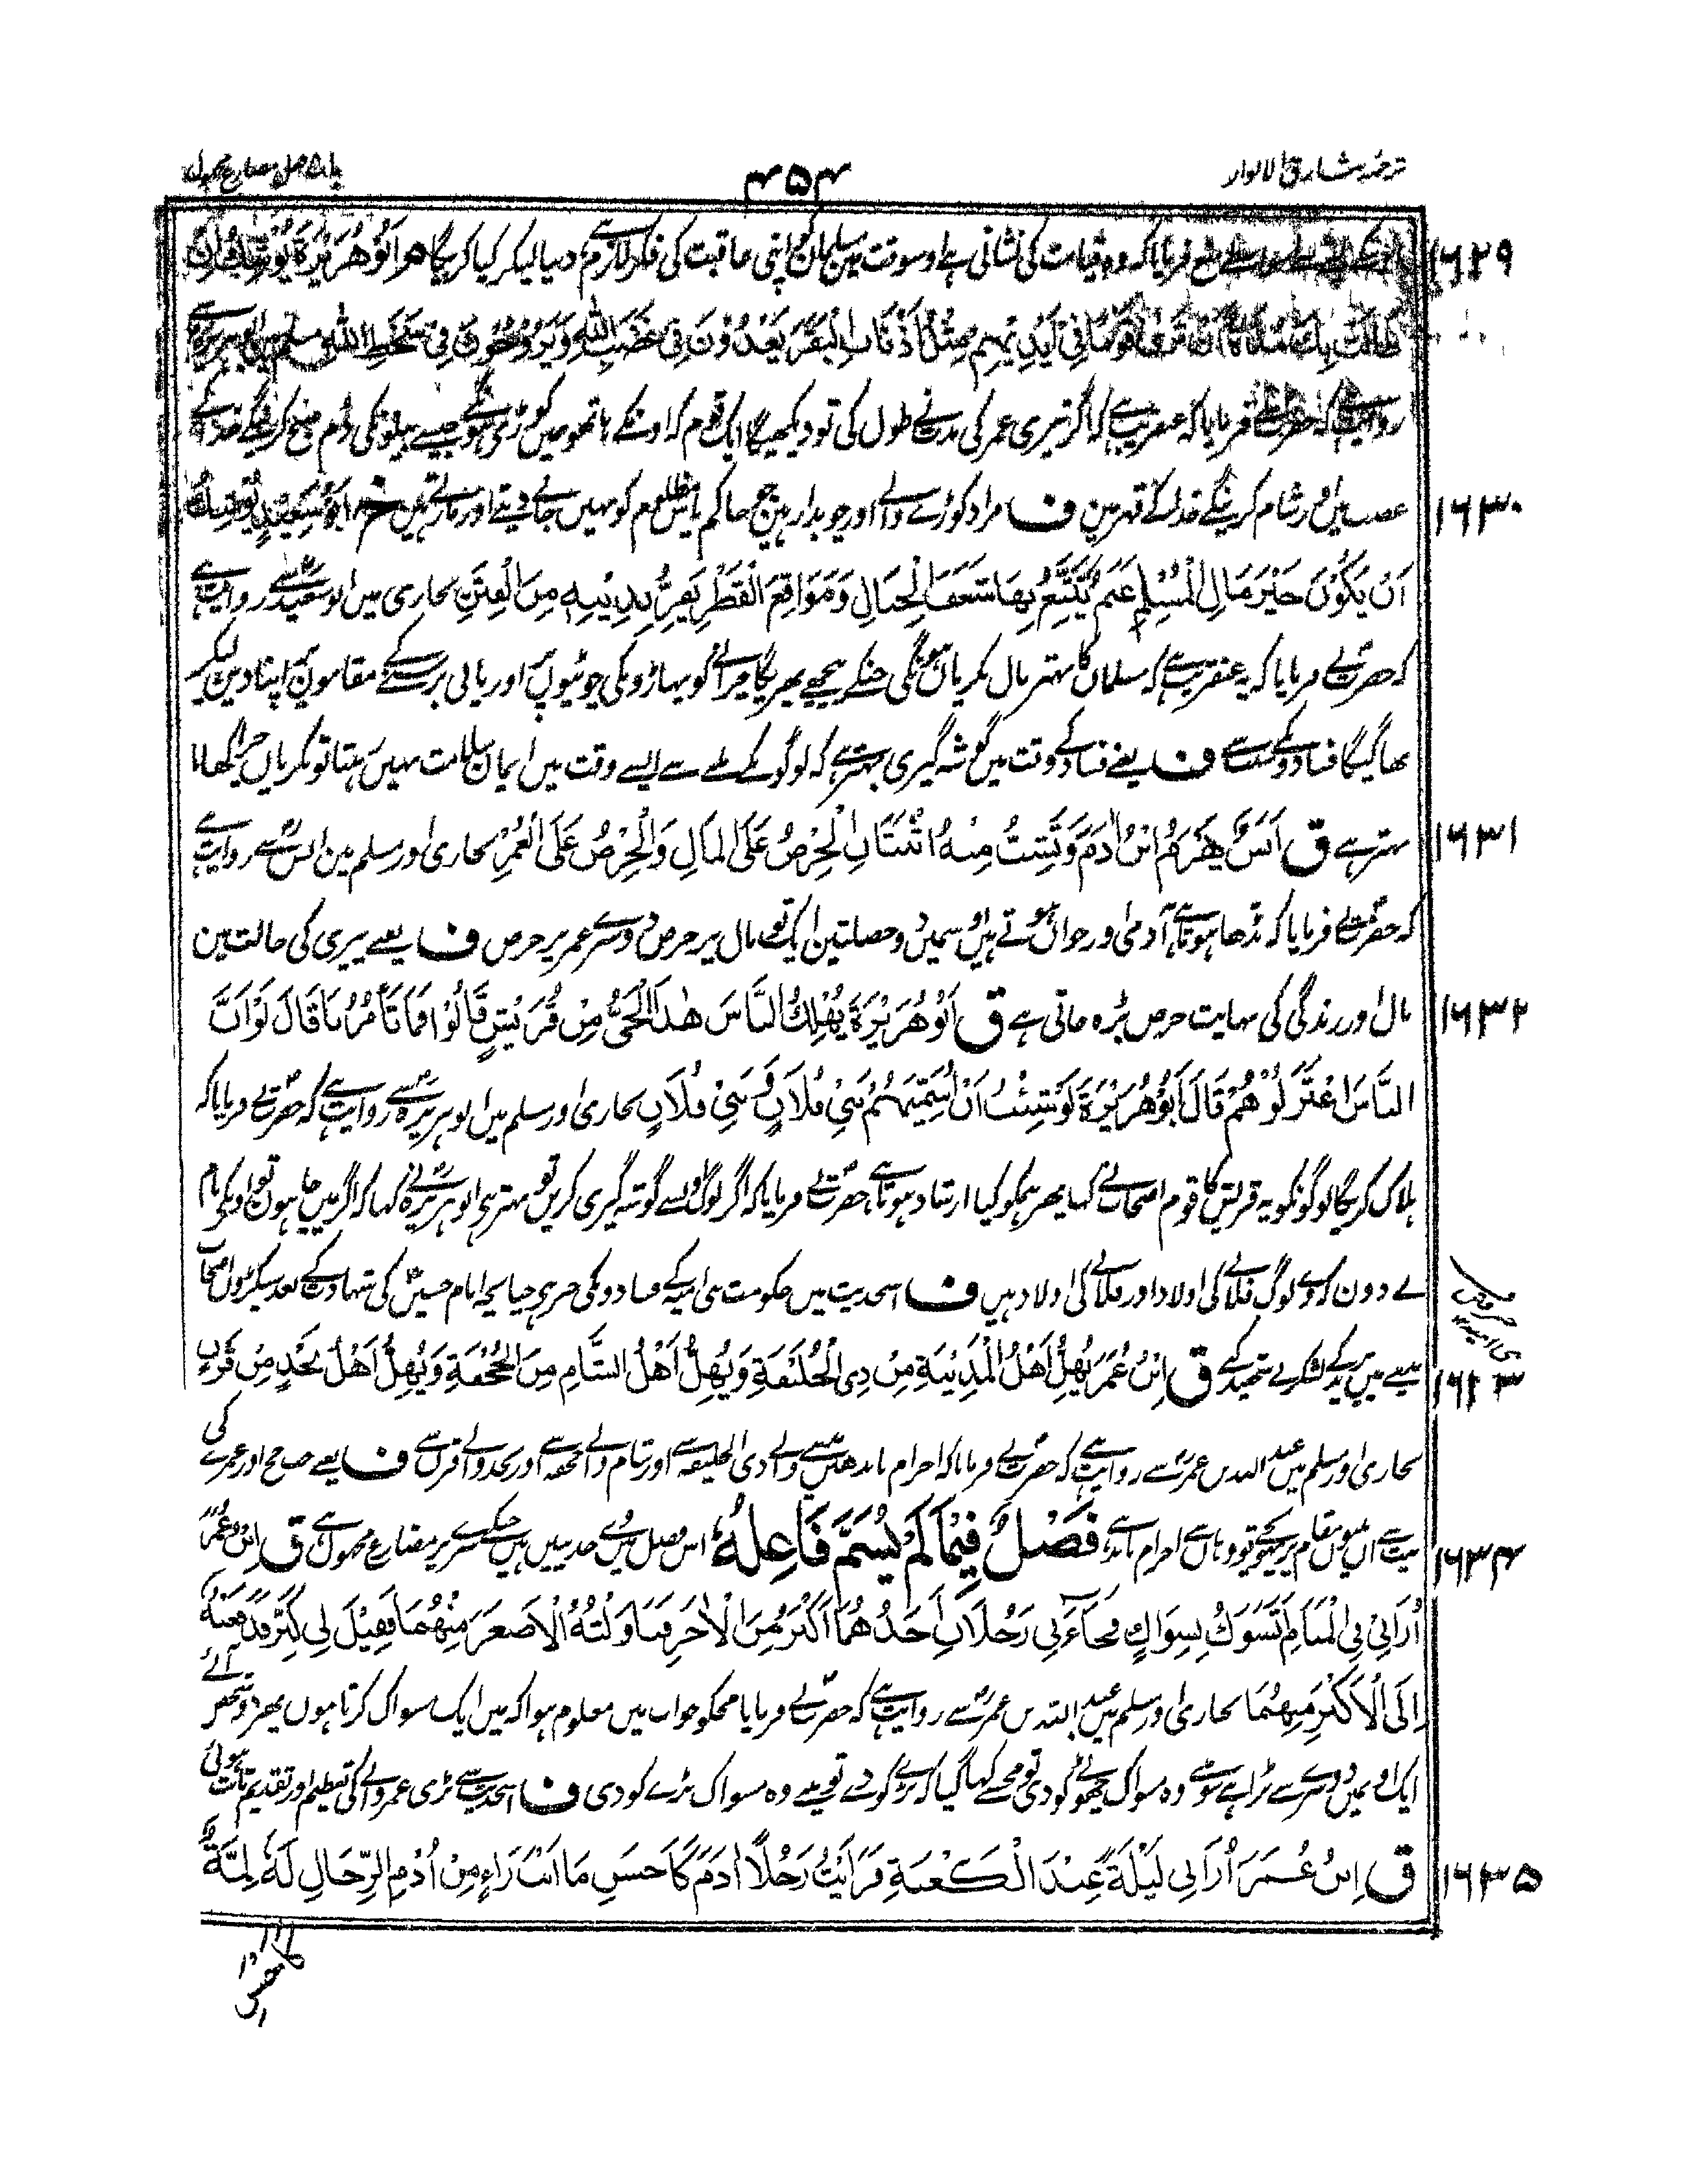 ترجمہ مشارق الانوار
۴۵۴
باب ۵ فصل مضارع مجہول
۱۶۲۹
فرمایا کہ وہ قیامت کی نشانی ہے اوسوقت میں مسلمان کو اپنی عاقبت کی فکر لازم ہے دنیا لیکر کیا کریگا هر اَبُوْ هُرَيْرَةَ يُوْشِكُ اِنْ
طَالَتْ بِكَ مُدَّةٌ اَنْ تَرٰى قَوْمًا فِيْ اَيْدِيْهِمْ مِثْلُ اَذْنَابِ الْبَقَرِ يَغْدُوْنَ فِيْ غَضَبِ اللّٰهِ وَيَرُوْحُوْنَ فِيْ سَخَطِ اللّٰهِ مسلم میں ابوہریرہ سے
روایت ہے کہ حضرت نے فرمایا کہ عنقریب ہے کہ اگر تیری عمر کی مدت نے طول کی تو دیکھیگا ایک قوم کہ اونکے ہاتھو میں کوڑے ہونگے جیسے بیلونکی دم صبح کرینگے خدا کے
۱۶۳۰
غضب میں اور شام کرینگے خدا کے قہر میں ف مراد کوڑے والے اور چوبدار ہیں جو حاکم پاس مظلوم کو نہیں جانے دیتے اور مارتے ہیں خ اَبُوْ سَعِيْدٍ يُوْشِكُ
اَنْ يَكُوْنَ خَيْرَ مَالِ الْمُسْلِمِ غَنَمٌ يَتَّبِعُ بِهَا شَعَفَ الْجِبَالِ وَمَوَاقِعَ الْقَطْرِ يَفِرُّ بِدِيْنِهٖ مِنَ الْفِتَنِ بخاری میں ابو سعیدؓ سے روایت ہے
کہ حضرتؐ نے فرمایا کہ یہ عنقریب ہے کہ مسلمان کا بہتر مال بکریاں ہونگی جنکے پیچھے پھریگا چرانے کو پہاڑونکی چوٹیوں پر اور پانی برسنے کے مقاموں پر اپنا دین لیکر
بھاگیگا فسادونکے سبب سے ف یعنے فساد کے وقت میں گوشہ گیری بہتر ہے کہ لوگونکے ملنے سے ایسے وقت میں ایمان سلامت نہیں رہتا تو بکریاں چرا کے کھانا
۱۶۳۱
بہتر ہے ق اَنَسٌ يَهْرَمُ ابْنُ اٰدَمَ وَتَشِبُّ مِنْهُ اثْنَتَانِ الْحِرْصُ عَلَى الْمَالِ وَالْحِرْصُ عَلَى الْعُمُرِ بخاری اور مسلم میں انسؓ سے روایت ہے
کہ حضرتؐ نے فرمایا کہ بڈھا ہوتا ہے آدمی اور جوان ہوتے ہیں اوسمیں دو خصلتیں ایک تو مال پر حرص دوسرے عمر پر حرص ف یعنے پیری کی حالت میں
۱۶۳۲
مال اور زندگی کی نہایت حرص بڑہ جاتی ہے ق اَبُوْ هُرَيْرَةَ يُهْلِكُ النَّاسَ هٰذَا الْحَيُّ مِنْ قُرَيْشٍ قَالُوْا فَمَا تَأْمُرُنَا قَالَ لَوْ اَنَّ
النَّاسَ اعْتَزَلُوْهُمْ قَالَ اَبُوْ هُرَيْرَةَ لَوْ شِئْتُ اَنْ اُسَمِّيَهُمْ بَنِيْ فُلَانٍ وَبَنِيْ فُلَانٍ بخاری اور مسلم میں ابو ہریرہؓ سے روایت ہے کہ حضرتؐ نے فرمایا کہ
ہلاک کریگا لوگونکو یہ قریش کا قوم اصحاب نے کہا پھر ہمکو کیا ارشاد ہوتا ہے حضرتؐ نے فرمایا کہ اگر لوگ اونسے گوشہ گیری کریں تو بہتر ہے ابوہریرہؓ نے کہا کہ اگر میں چاہوں تو اونکے نام
لے دون کہ وے لوگ فلانے کی اولاد اور فلانے کی اولاد ہیں ف اسحدیث میں حکومت بنی امیہ کے فسادونکی خبر ہے چنانچہ امام حسینؓ کی شہادت کے بعد سیکڑوں اصحاب
۱۶۳۳
مدینے میں یزید کے لشکر نے شہید کئے ق اِبْنُ عُمَرَ يُهِلُّ اَهْلُ الْمَدِيْنَةِ مِنْ ذِي الْحُلَيْفَةِ وَيُهِلُّ اَهْلُ الشَّامِ مِنَ الْجُحْفَةِ وَيُهِلُّ اَهْلُ نَجْدٍ مِنْ قَرْنٍ
بخاری اور مسلم میں عبد اللہ بن عمرؓ سے روایت ہے کہ حضرتؐ نے فرمایا کہ احرام باندھیں مدینے والے ذی الحلیفہ سے اور شام والے جحفہ سے اور نجد والے قرن سے ف یعنے جب حج اور عمرے کی
۱۶۳۴
نیت سے ان تینوں مقام پر پہنچے تو وہاں سے احرام باندھے فَصْلٌ فِيْمَا لَمْ يُسَمَّ فَاعِلُهٗ اس فصل میں وے حدیثیں ہیں جنکے سرے پر مضارع مجہول ہے ق اِبْنُ عُمَرَ
اُرَانِيْ فِي الْمَنَامِ اَتَسَوَّكُ بِسِوَاكٍ فَجَاءَنِيْ رَجُلَانِ اَحَدُهُمَا اَكْبَرُ مِنَ الْاٰخَرِ فَنَاوَلْتُهُ الْاَصْغَرَ مِنْهُمَا فَقِيْلَ لِيْ كَبِّرْ فَدَفَعْتُهٗ
اِلَى الْاَكْبَرِ مِنْهُمَا بخاری اور مسلم میں عبد اللہ بن عمرؓ سے روایت ہے کہ حضرتؐ نے فرمایا مجکو خواب میں معلوم ہوا کہ میں ایک مسواک کرتا ہوں پھر دو شخص آئے
ایک اونمیں دوسرے سے بڑا ہے سو میں نے وہ مسواک چھوٹے کو دی تو مجھسے کہا گیا کہ بڑے کو دے تو میں نے وہ مسواک بڑے کو دی ف اسحدیث سے بڑی عمر والے کی تعظیم اور تقدیم ثابت ہوئی
۱۶۳۵
ق اِبْنُ عُمَرَ اُرَانِيْ لَيْلَةً عِنْدَ الْكَعْبَةِ فَرَاَيْتُ رَجُلًا اٰدَمَ كَاَحْسَنِ مَا اَنْتَ رَاءٍ مِنْ اُدْمِ الرِّجَالِ لَهٗ لِمَّةٌ